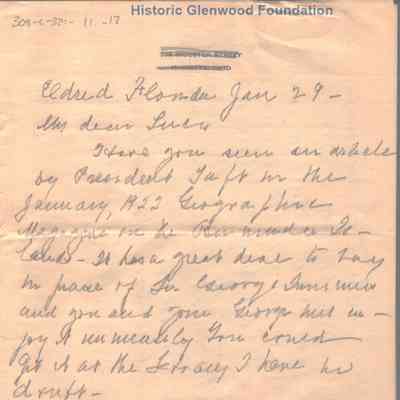 Historic Glenwood Foundation
Eldred Florida Jan 29 -
My dear Lucy
Have you seen an article
by President Taft in the
January, 1922 Geographic
Magazine on the Bermudas Is-
lands - It has a great deal to say
in praise of Sir George
and you and your George must en-
joy it immensely You could
get it at the library I have no
doubt -